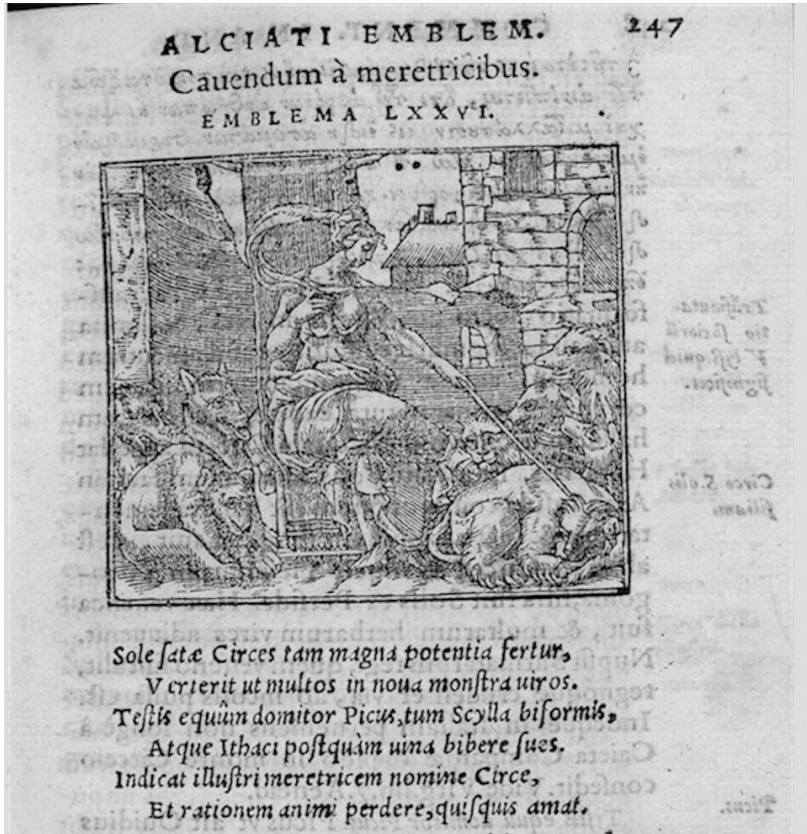 ALCIATI EMBLEM. 247
Cauendum à meretricibus.
EMBLEMA LXXVI.
Sole ſatæ Circes tam magna potentia fertur,
Verterit ut multos in noua monſtra uiros.
Teſtis equûm domitor Picus,tum Scylla biformis,
Atque Ithaci poſtquàm uina bibere ſues.
Indicat illuſtri meretricem nomine Circe,
Et rationem animi perdere,quiſquis amat.